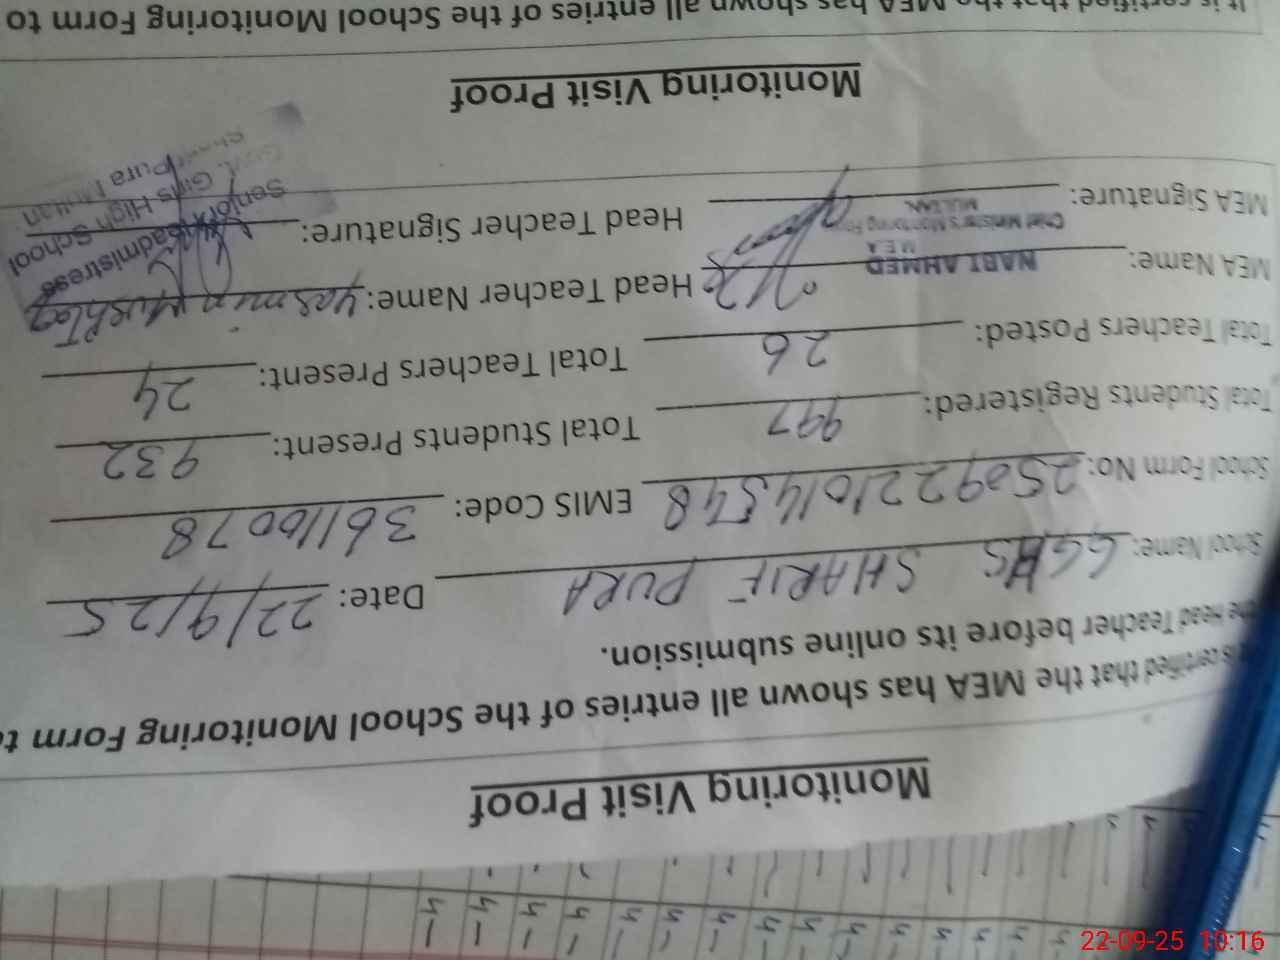 Monitoring Visit Proof
is certified that the MEA has shown all entries of the School Monitoring Form to
the Head Teacher before its online submission.
School Name: GGHS SHARIF PURA Date: 22/9/25
School Form No: 2509221014548 EMIS Code: 36110078
Total Students Registered: 997 Total Students Present: 932
Total Teachers Posted: 26 Total Teachers Present: 24
MEA Name: NABI AHMED Head Teacher Name: Yasmin Mushtaq
M E A
Chief Minister's Monitoring Force
MULTAN.
MEA Signature: Head Teacher Signature:
Senior Headmistress
Govt. Girls High School
Sharif Pura Multan
Monitoring Visit Proof
It is certified that the MEA has shown all entries of the School Monitoring Form to
22-09-25 10:16